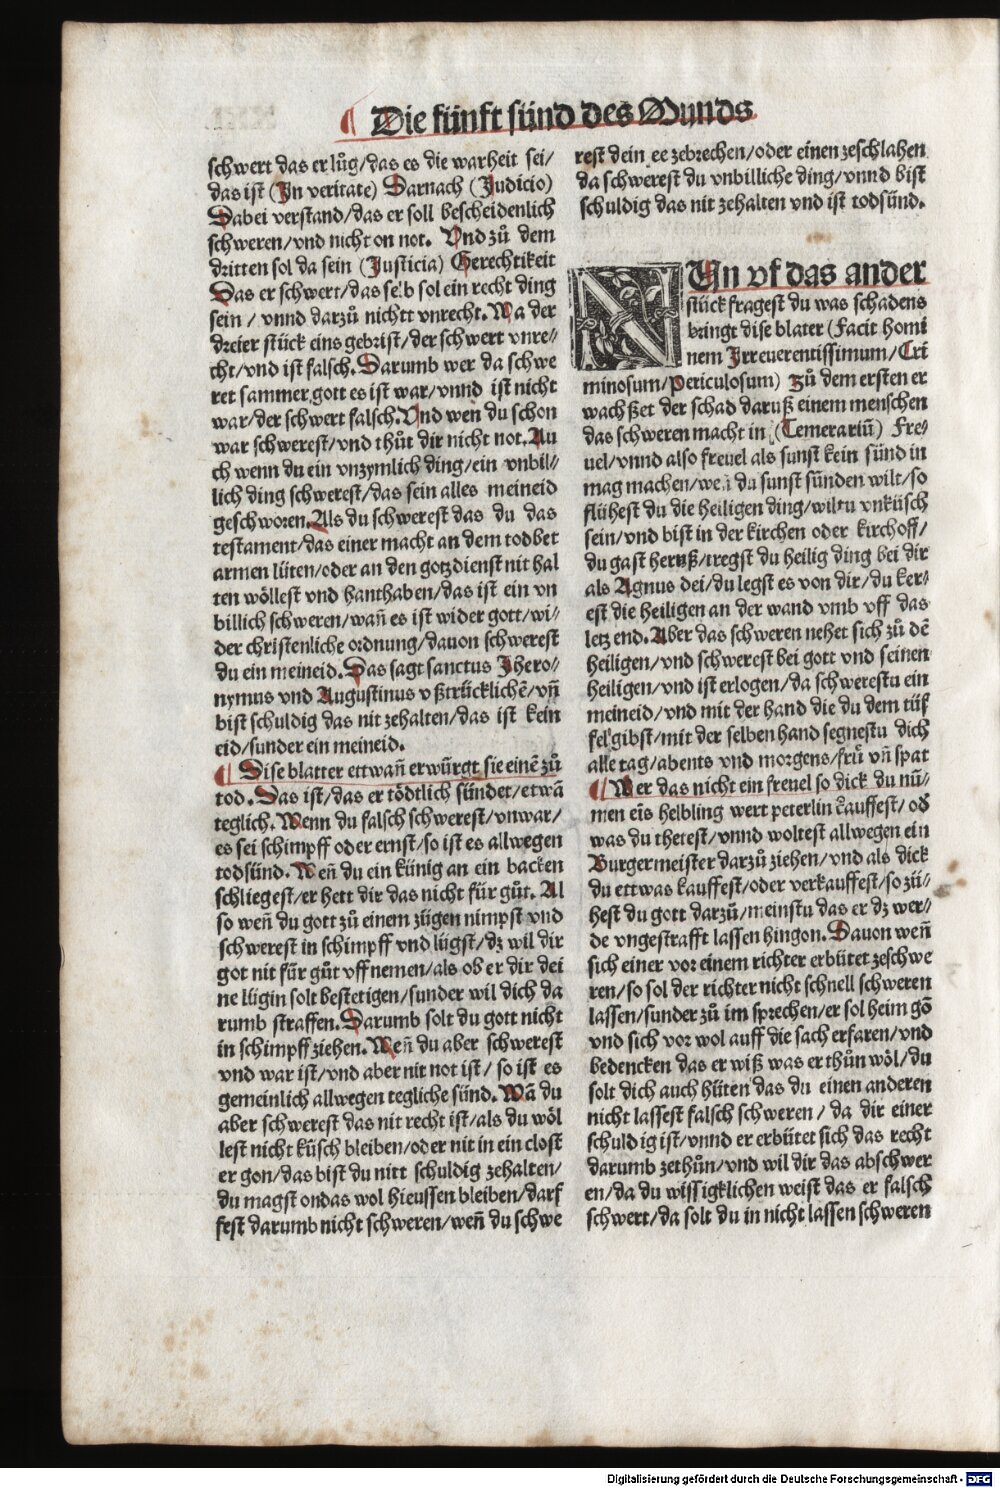 ¶ Die fünft sünd des Munds
schwert das er lůg/das es die warheit sei/
das ist (In veritate) Darnach (Judicio)
Dabei verstand/das er soll bescheidenlich
schweren/vnd nicht on not. Vnd zů dem
dritten sol da sein (Justicia) Gerechtikeit
Das er schwert/das selb sol ein recht ding
sein / vnnd darzů nichtt vnrecht. Wa der
dreier stück eins gebrist/der schwert vnre⸗
cht/vnd ist falsch. Darumb wer da schwe
ret sammer gott es ist war/vnnd ist nicht
war/der schwert falsch. Vnd wen du schon
war schwerest/vnd thůt dir nicht not. Au
ch wenn du ein vnzymlich ding/ein vnbil⸗
lich ding schwerest/das sein alles meineid
geschworen. Als du schwerest das du das
testament/das einer macht an dem todbet
armen lüten/oder an den gotzdienst nit hal
ten wöllest vnd hanthaben/das ist ein vn
billich schweren/wañ es ist wider gott/wi⸗
der christenliche ordnung/dauon schwerest
du ein meineid. Das sagt sanctus Jhero⸗
nymus vnd Augustinus vßtrücklichē/vñ
bist schuldig das nit zehalten/das ist kein
eid/sunder ein meineid.
¶ Dise blatter ettwañ erwürgt sie einē zů
tod. Das ist/das er tödtlich sündet/etwā
teglich. Wenn du falsch schwerest/vnwar/
es sei schimpff oder ernst/so ist es allwegen
todsünd. Weñ du ein künig an ein backen
schliegest/er hett dir das nicht für gůt. Al
so weñ du gott zů einem zügen nimpst vnd
schwerest in schimpff vnd lügst/dz wil dir
got nit für gůt vffnemen/als ob er dir dei
ne lügin solt bestetigen/sunder wil dich da
rumb straffen. Darumb solt du gott nicht
in schimpff ziehen. Weñ du aber schwerest
vnd war ist/vnd aber nit not ist/ so ist es
gemeinlich allwegen tegliche sünd. Wā du
aber schwerest das nit recht ist/als du wöl
lest nicht küsch bleiben/oder nit in ein clost
er gon/das bist du nitt schuldig zehalten/
du magst on das wol hieussen bleiben/darf
fest darumb nicht schweren/weñ du schwe
rest dein ee zebrechen/oder einen zeschlahen
da schwerest du vnbilliche ding/vnnd bist
schuldig das nit zehalten vnd ist todsünd.
NUn vf das ander
stück fragest du was schadens
bringt dise blater (Facit homi
nem Irreuerentissimum/Cri
minosum/Periculosum) Zů dem ersten er
wachßet der schad daruß einem menschen
das schweren macht in (Temerariū) Fre⸗
uel/vnnd also freuel als sunst kein sünd in
mag machen/weñ du sunst sünden wilt/so
flühest du die heiligen ding/wiltu vnküsch
sein/vnd bist in der kirchen oder kirchoff/
du gast heruß/tregst du heilig ding bei dir
als Agnus dei/du legst es von dir/du ker⸗
est die heiligen an der wand vmb vff das
letz end. Aber das schweren nehet sich zů dē
heiligen/vnd schwerest bei gott vnd seinen
heiligen/vnd ist erlogen/da schwerestu ein
meineid/vnd mit der hand die du dem tüf
fel gibst/mit der selben hand segnestu dich
alle tag/abents vnd morgens/frů vñ spat
¶ Wer das nicht ein freuel so dick du nū⸗/
men eīs helbling wert peterlin kauffest/od
was du thetest/vnnd woltest allwegen ein
Burgermeister darzů ziehen/vnd als dick
du ettwas kauffest/oder verkauffest/so zü⸗
hest du gott darzů/meinstu das er dz wer⸗
de vngestrafft lassen hingon. Dauon weñ
sich einer vor einem richter erbütet zeschwe
ren/so sol der richter nicht schnell schweren
lassen/sunder zů im sprechen/er sol heim gō
vnd sich vor wol auff die sach erfaren/vnd
bedencken das er wiß was er thůn wöl/du
solt dich auch hüten das du einen anderen
nicht lassest falsch schweren / da dir einer
schuldig ist/vnnd er erbütet sich das recht
darumb zethůn/vnd wil dir das abschwer
en/da du wissigklichen weist das er falsch
schwert/da solt du in nicht lassen schweren
Digitalisierung gefördert durch die Deutsche Forschungsgemeinschaft - DFG